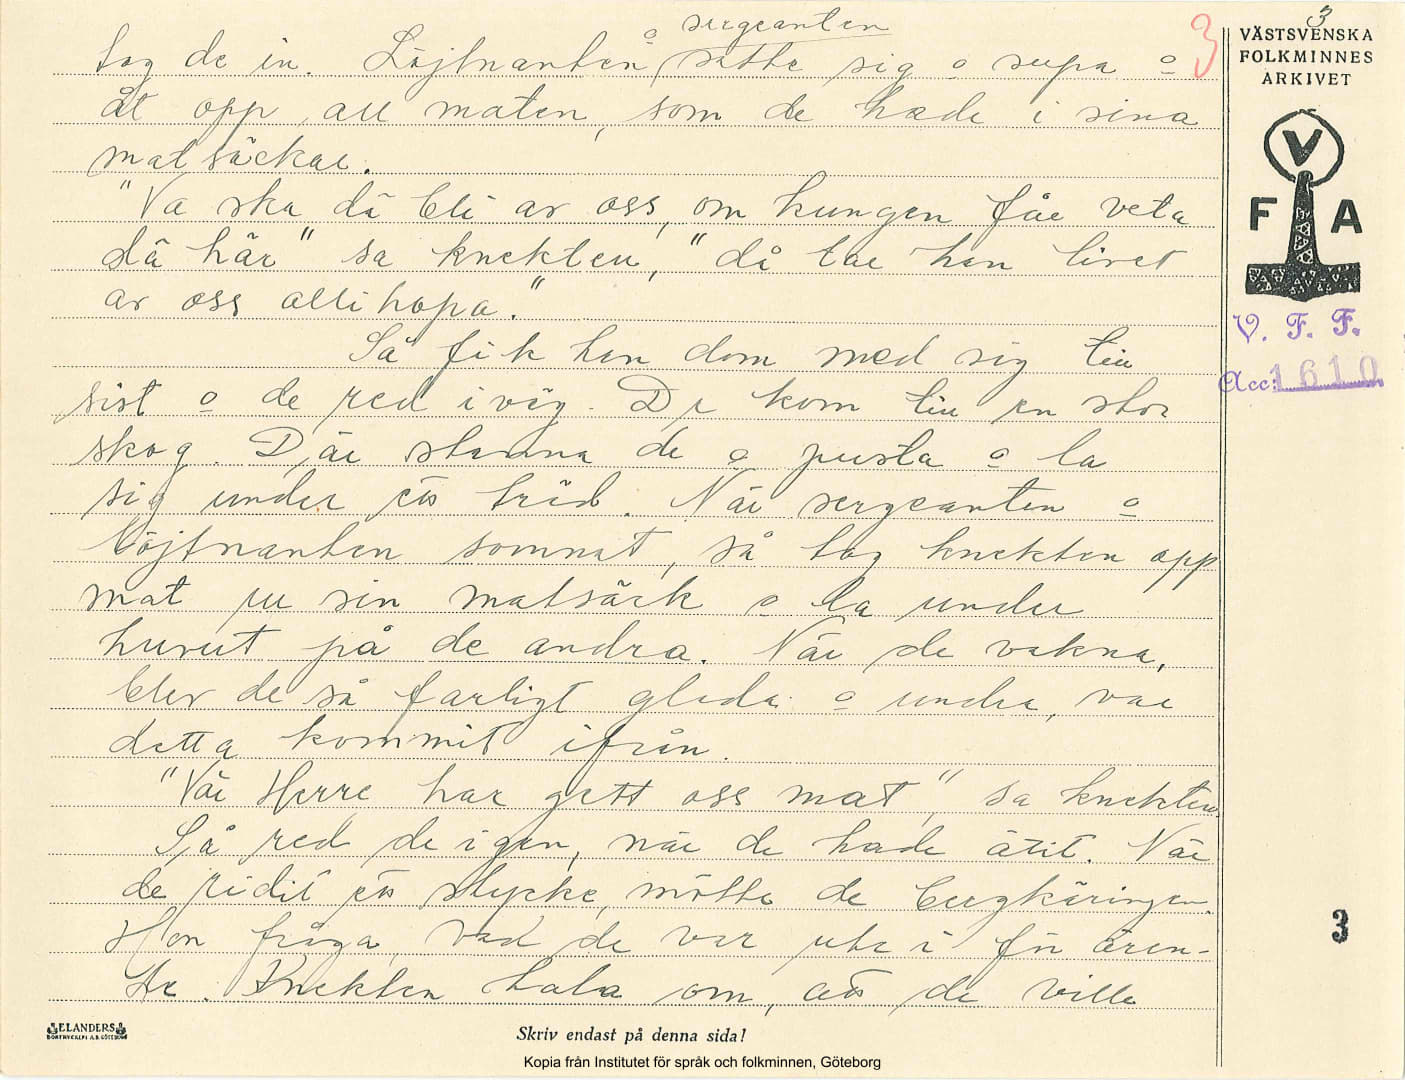 3
3
VÄSTSVENSKA
FOLKMINNES
ARKIVET
V
F A
V. F. F.
Acc: 1610
o sergeanten
tog de in. Löjtnanten satte sig o supa o
åt opp all maten, som de hade i sina
matsäckar.
"Va ska dä bli av oss, om kungen får veta
dä här" sa knekten, "då tar han livet
av oss allihopa."
Så fik han dom med sig till
sist o de red iväg. De kom till en stor
skog. Där stanna de o pusta o la
sig under ett träd. När sergeanten o
löjtnanten somnat, så tog knekten opp
mat ur sin matsäck o la under
huvut på de andra. När de vakna,
blev de så farligt glada o undra, var
detta kommit ifrån.
"Vår Herre har gett oss mat", sa knekten.
Så red de igen, när de hade ätit. När
de ridit ett stycke, mötte de bergkäringen.
Hon fråga, vad de var ute i för ären-
de. Knekten tala om, att de ville
3
ELANDERS
BOKTRYCKERI A.B. GÖTEBORG
Skriv endast på denna sida!
Kopia från Institutet för språk och folkminnen, Göteborg